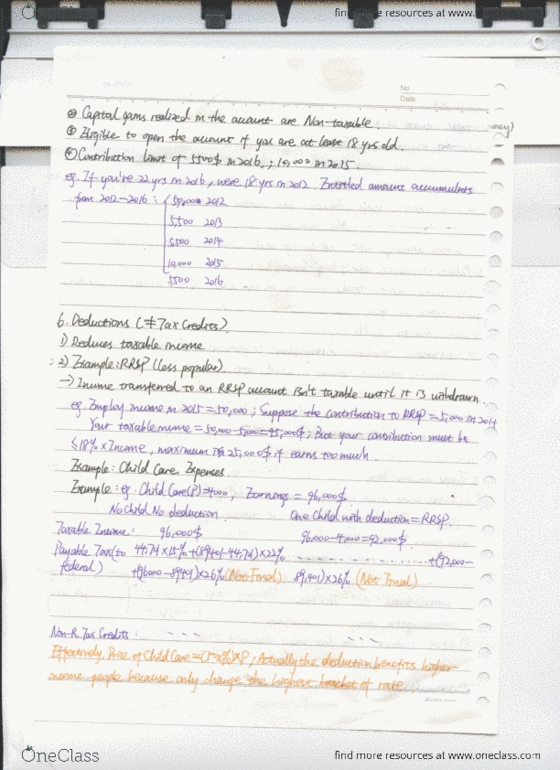 find more resources at www.
No
Date
③ Capital gains realized in the account are Non-taxable.
④ Eligible to open the account if you are at least 18 yrs old.
⑤ Contribution limit of 5500$ in 2016, ; 10,000 in 2015.
eg. If you're 22 yrs in 2016, were 18 yrs in 2012 Entitled amount accumulates
from 2012-2016 : 2012
5,500 2013
5,500 2014
10,000 2015
5500 2016
6. Deductions (≠ Tax Credits)
1) Reduces taxable income
2) Example: RRSP (less popular)
→ Income transferred to an RRSP account isn't taxable until it is withdrawn
eg. Employ income in 2015 = 50,000 ; Suppose the contribution to RRSP = 5,000 in 2014
Your taxable income = 50,000-5,000=45,000$ ; But your contribution must be
≤ 18% × Income, maximum 25,000$ if earns too much
Example: Child Care Expenses
Example: eg. Child Care(P)=4000, Earnings = 96,000$
No Child No deduction One Child with deduction = RRSP.
Taxable Income: 96,000$ 96,000-4,000=92,000$
Payable Tax (to 44,701×15%+(89,401-44,701)×22% +(92,000-
federal) +(96,000-89,401)×26% (Not Final) 89,401)×26% (Not Final)
Non-R Tax Credits :
Effectively, Price of Child Care = (1-x%)×P, Actually the deduction benefits higher
income people because only change the highest bracket of rate
OneClass
find more resources at www.oneclass.com